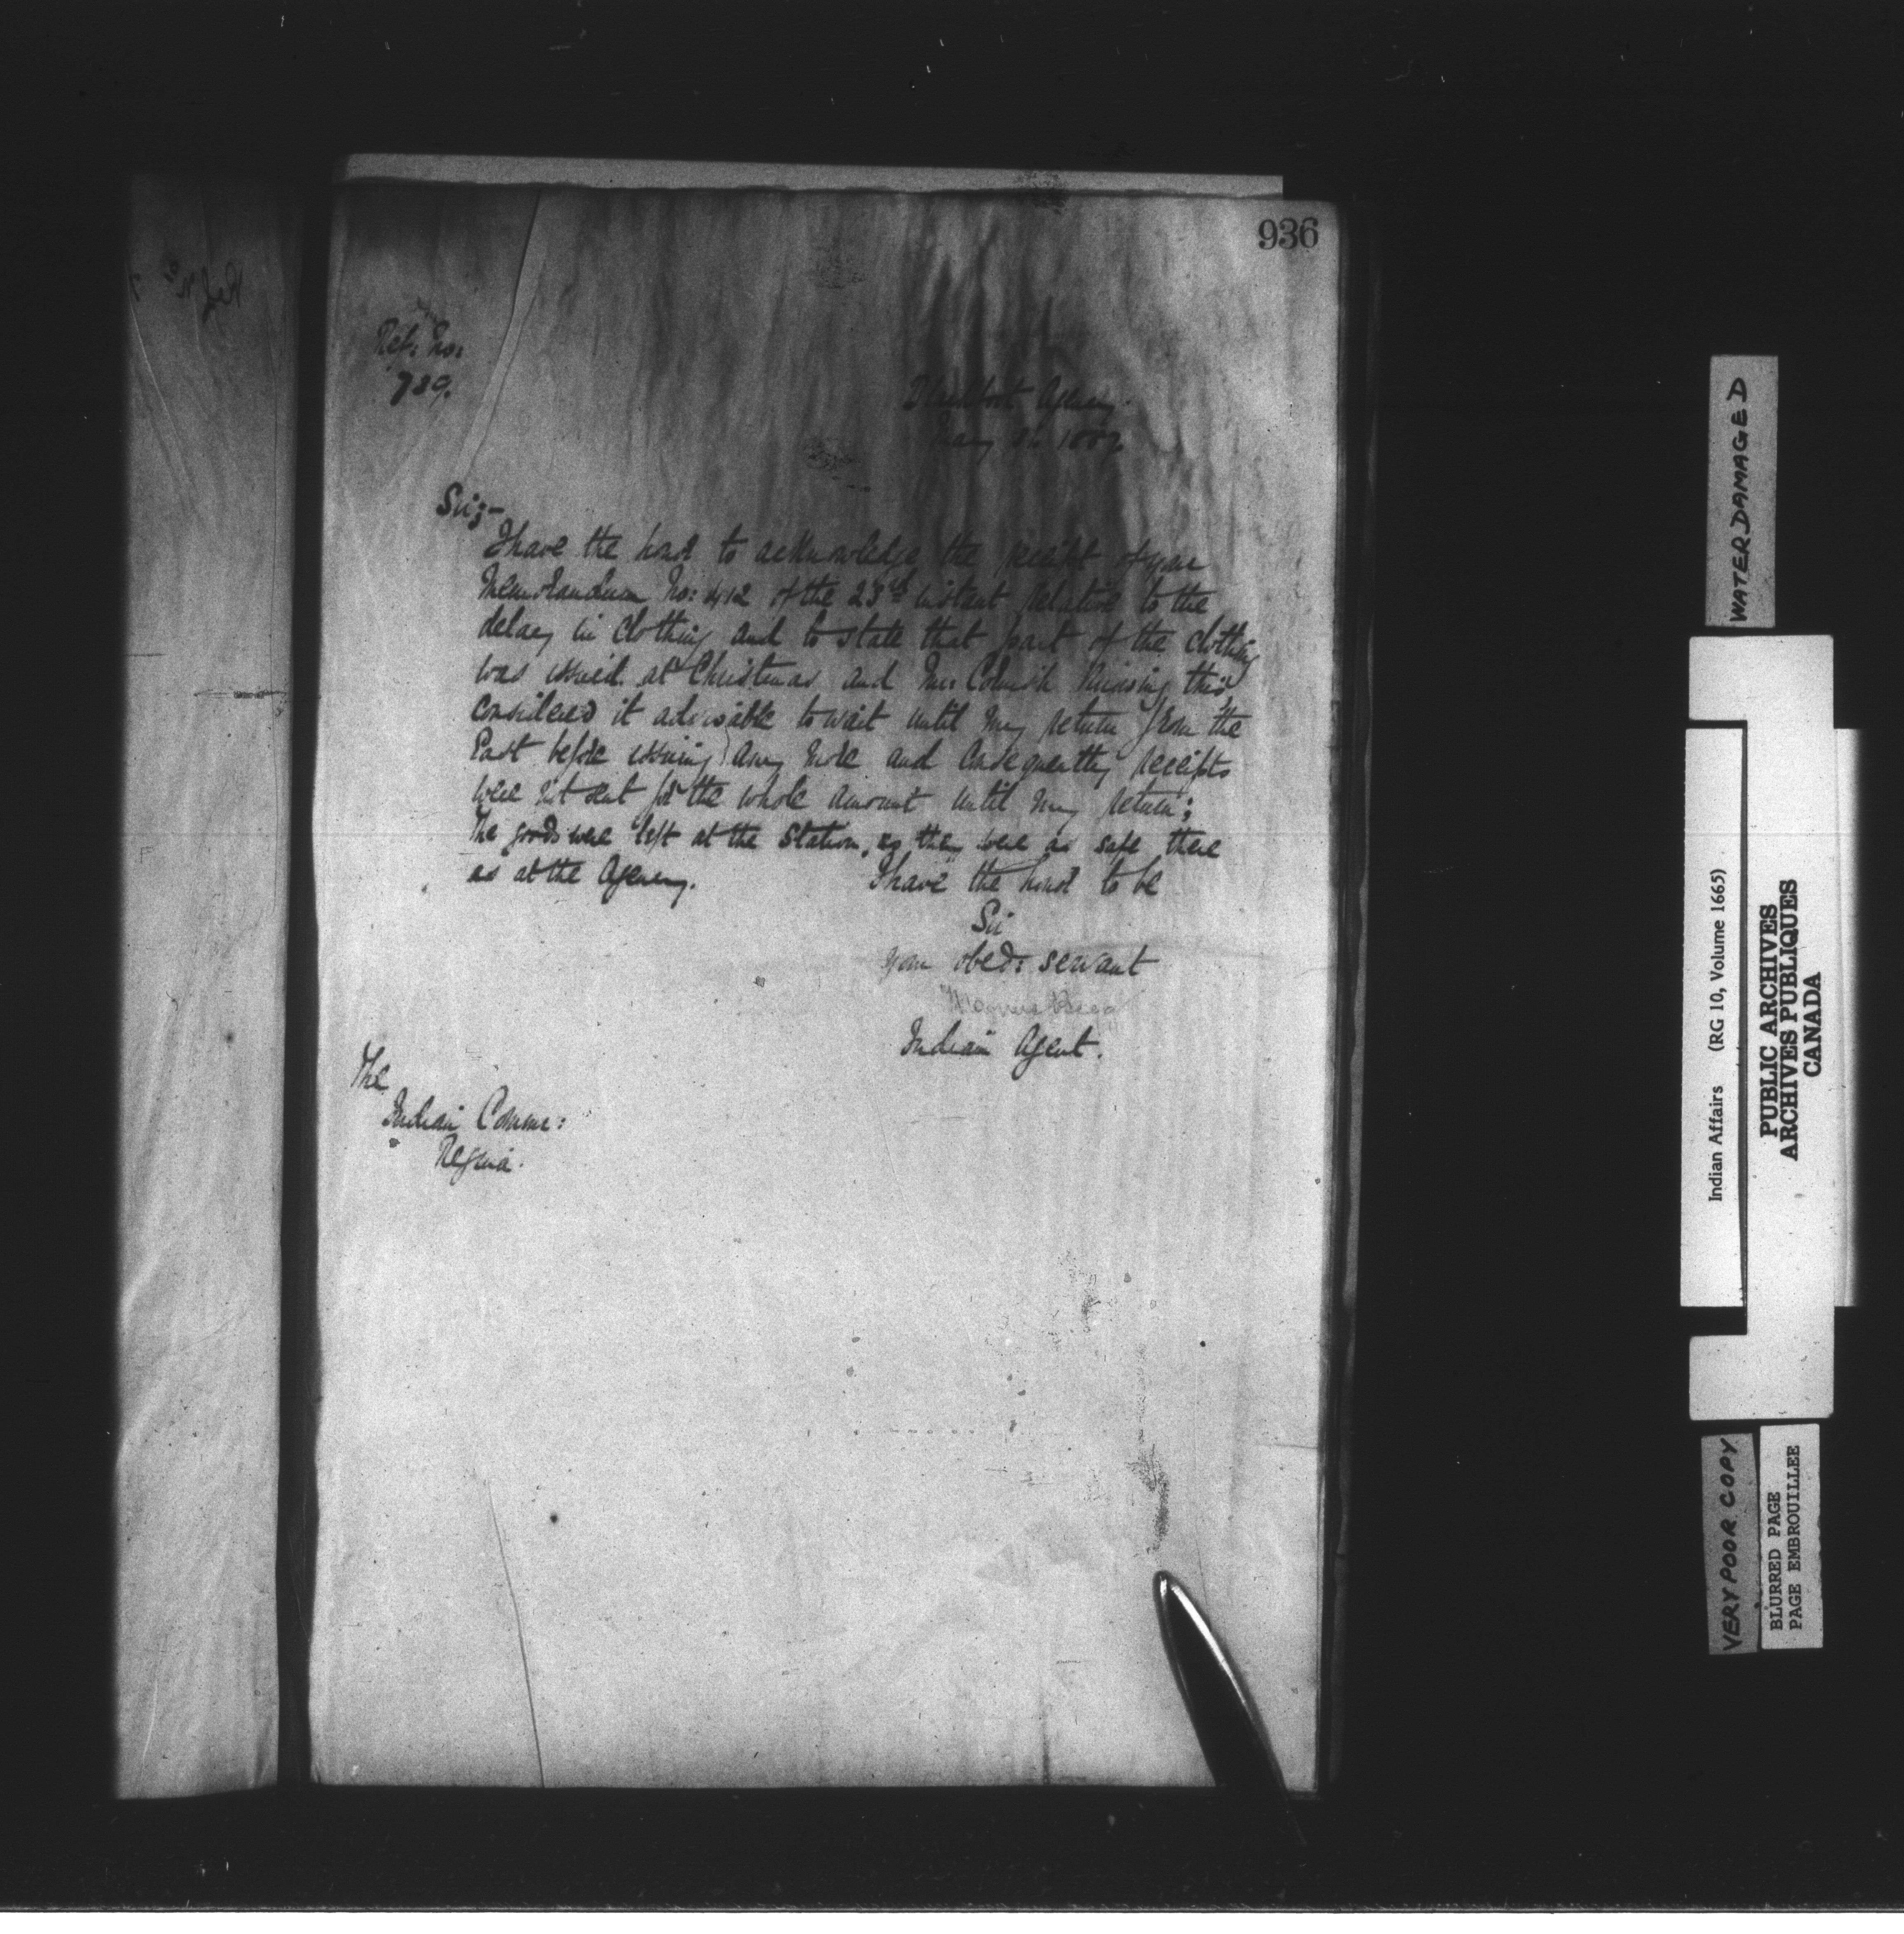 936
Ref: No:
789.
Blackfoot Agency.
May 31. 1887.
Sir;-
I have the honor to acknowledge the receipt of your
Memorandum No: 412 of the 23rd instant relative to the
delay in Clothing and to state that part of the clothing
was issued at Christmas and Mr: Cornish knowing this
considered it advisable to wait until my return from the
East before issuing any more and consequently receipts
were not sent for the whole amount until my return;
The goods were left at the Station, as they were as safe there
as at the Agency. I have the honor to be
Sir
your obed: servant
Magnus Begg
Indian Agent.
The
Indian Comm:
Regina.
WATER DAMAGED
Indian Affairs (RG 10, Volume 1665)
PUBLIC ARCHIVES
ARCHIVES PUBLIQUES
CANADA
VERY POOR COPY
BLURRED PAGE
PAGE EMBROUILLEE